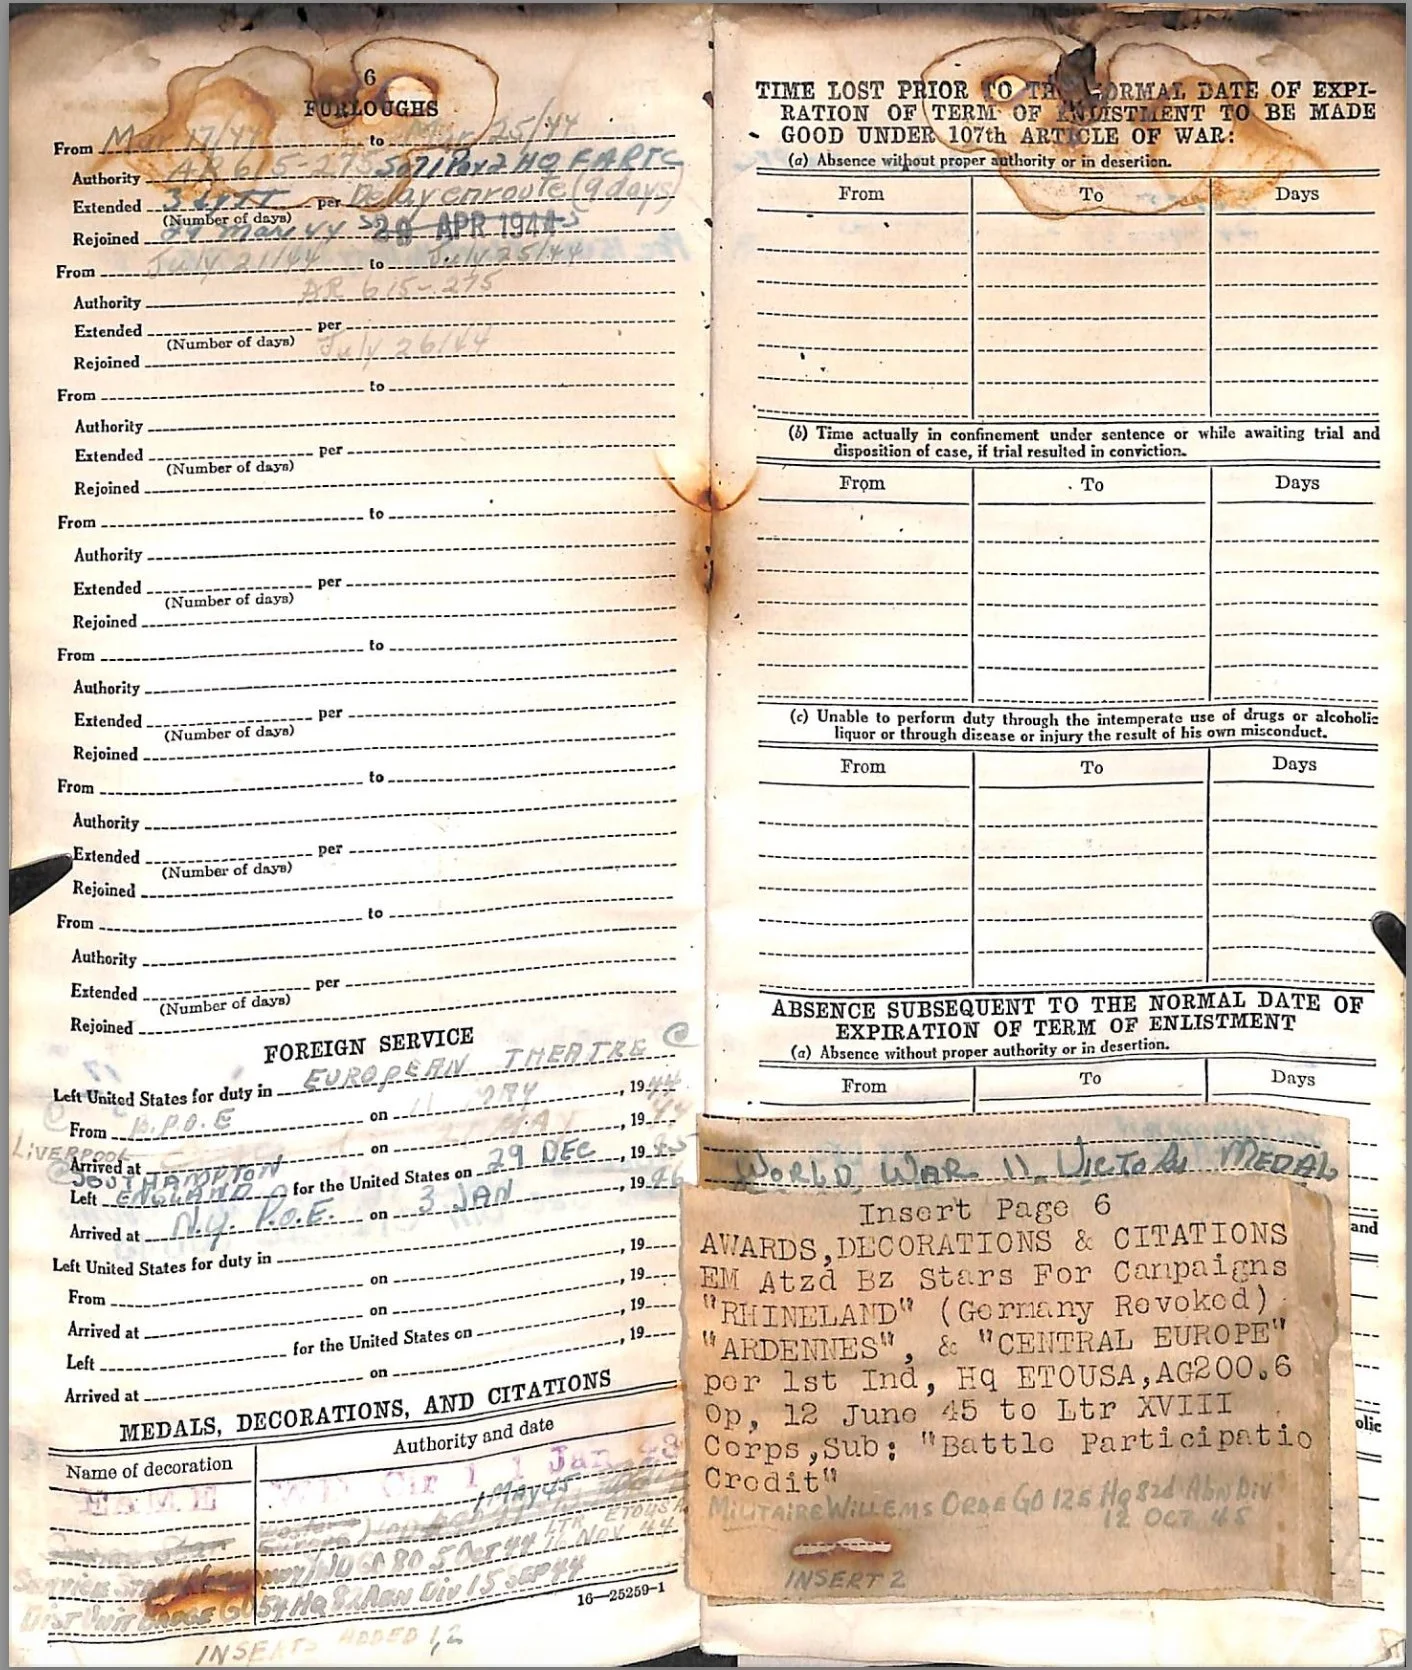 6
FURLOUGHS
From Mar 17/44 to Mar 25/44
Authority AR 615-275 So71 Par2 HQ FARTC
Extended 3 per Delay enroute (9 days)
(Number of days)
Rejoined 29 Mar 44 29 APR 1944
From July 21/44 to July 25/44
Authority AR 615-275
Extended per
(Number of days)
Rejoined July 26/44
From to
Authority
Extended per
(Number of days)
Rejoined
From to
Authority
Extended per
(Number of days)
Rejoined
From to
Authority
Extended per
(Number of days)
Rejoined
From to
Authority
Extended per
(Number of days)
Rejoined
From to
Authority
Extended per
(Number of days)
Rejoined
FOREIGN SERVICE
Left United States for duty in EUROPEAN THEATRE
From P.O.E on 11, 1944
LIVERPOOL
Arrived at on 21 MAY, 1944
SOUTHAMPTON
Left ENGLAND for the United States on 29 DEC, 1945
Arrived at N.Y. P.O.E. on 3 JAN, 1946
Left United States for duty in
From on , 19
Arrived at on , 19
Left for the United States on , 19
Arrived at on , 19
MEDALS, DECORATIONS, AND CITATIONS
Name of decoration Authority and date
EAME WD Cir 1 1 Jan 43
1 May 45
LTR ETOUSA
GO 80 5 Oct 44 16 Nov 44
DIST UNIT BADGE GO 54 Hq 82 Abn Div 15 Sep 44
16—25259-1
INSERTS ADDED 1,2
TIME LOST PRIOR TO THE NORMAL DATE OF EXPI-
RATION OF TERM OF ENLISTMENT TO BE MADE
GOOD UNDER 107th ARTICLE OF WAR:
(a) Absence without proper authority or in desertion.
From To Days
(b) Time actually in confinement under sentence or while awaiting trial and
disposition of case, if trial resulted in conviction.
From To Days
(c) Unable to perform duty through the intemperate use of drugs or alcoholic
liquor or through disease or injury the result of his own misconduct.
From To Days
ABSENCE SUBSEQUENT TO THE NORMAL DATE OF
EXPIRATION OF TERM OF ENLISTMENT
(a) Absence without proper authority or in desertion.
From To Days
WORLD WAR II VICTORY MEDAL
and
olic
Insert Page 6
AWARDS,DECORATIONS & CITATIONS
EM Atzd Bz Stars For Canpaigns
"RHINELAND" (Germany Revoked)
"ARDENNES", & "CENTRAL EUROPE"
per 1st Ind, Hq ETOUSA,AG200.6
Op, 12 June 45 to Ltr XVIII
Corps,Sub: "Battle Participatio
Credit"
MILITAIRE WILLEMS ORDE GO 125 Hq 82d Abn Div
12 OCT 45
INSERT 2